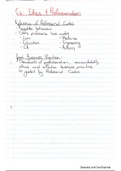 Cs Ethics & Professionalism
Relevance of Professional Codes
- Regulate behaviour
- Other professions have codes
- Law
- Medicine
- Education
- Engineering
- CA
- Nursing
Good Business Practice
- Standards of professionalism, accountability,
ethics and effective business practice
is guided by Professional Codes
Scanned with CamScanner